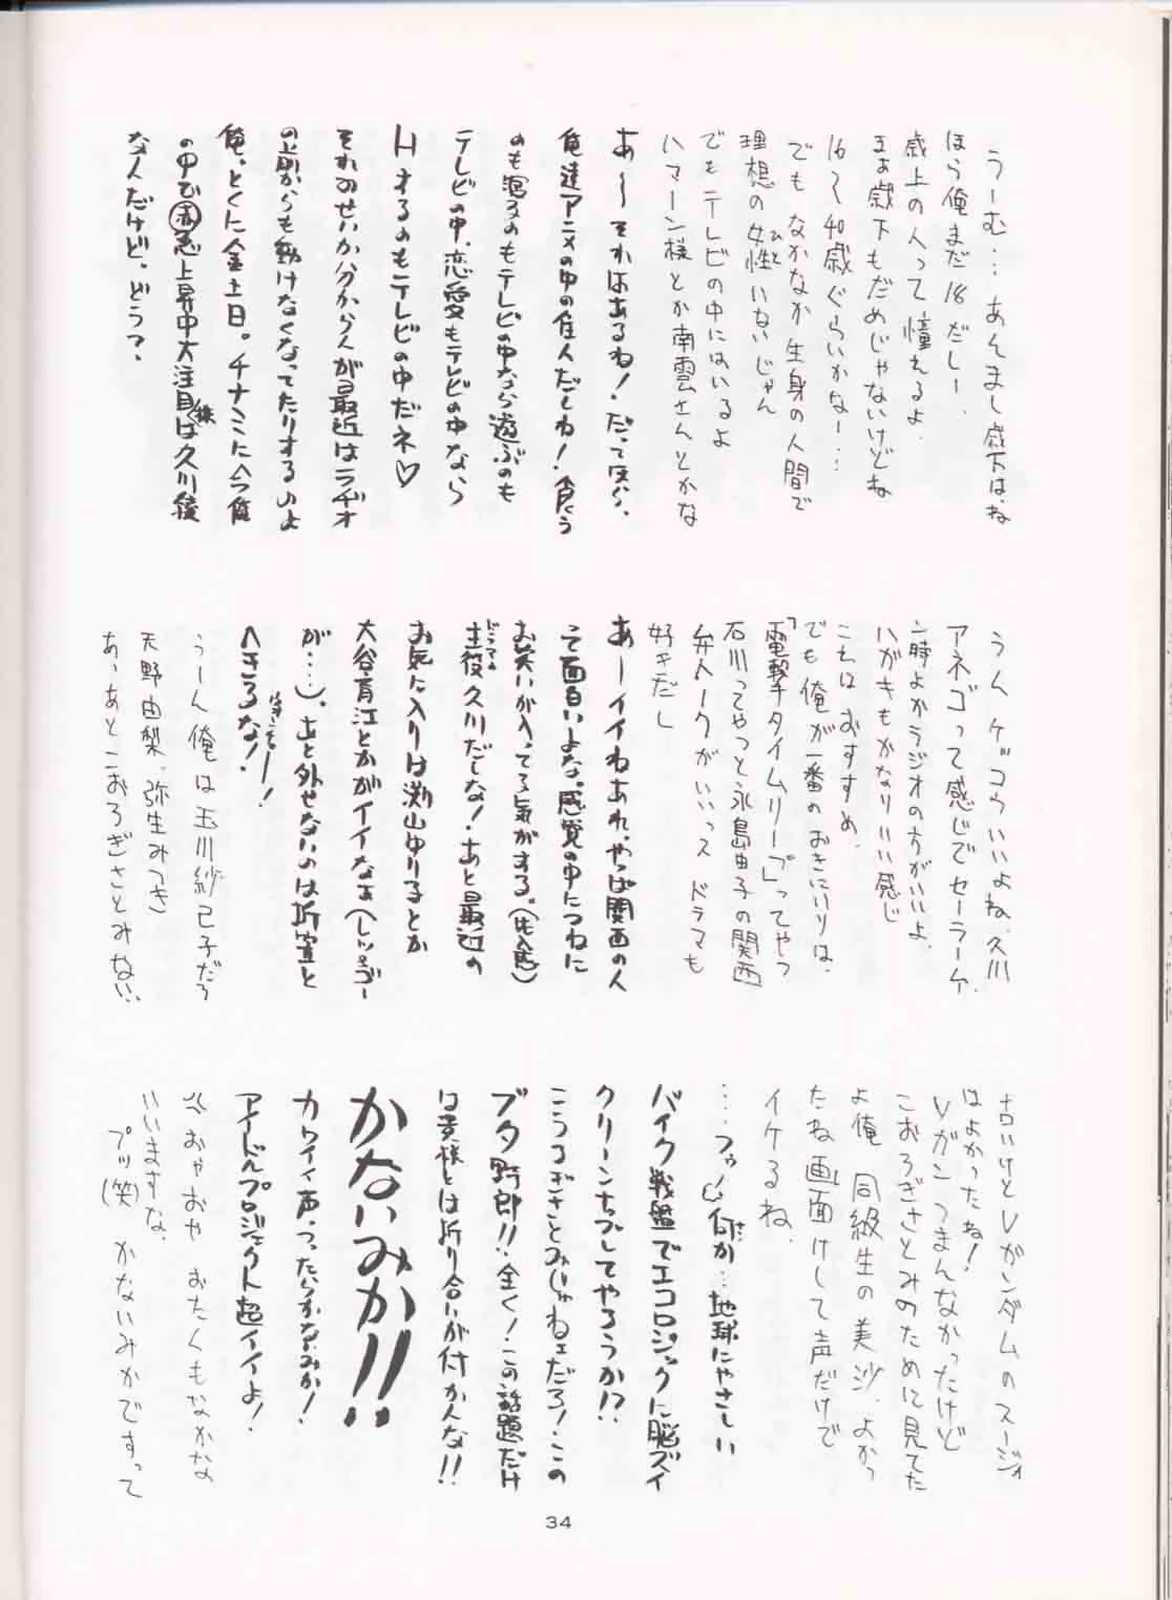 うーむ…あんまし歳下はね
ほら俺まだ18だしー、
歳上の人って憧れるよ
まぁ歳下もだめじゃないけどね
16〜40歳ぐらいかなー…
でもなかなか生身の人間で
理想の女性いないじゃん
ひと
でもテレビの中にはいるよ
ハマーン様とか南雲さんとかな
あ〜〜それはあるね!だって
俺達アニメの中の住人だしね!食う
のも寝るのもテレビの中なら遊ぶのも
テレビの中、恋愛もテレビの中なら
Hするのもテレビの中だネ♡
それのせいか分からんが最近はラヂオ
の前からも動けなくなってたりするのよ
俺。とくに金土日。チナミに今俺
の中で赤丸急上昇中大注目株は久川綾
なんだけど、どう?
うんケッコウいいよね、久川
アネゴって感じでセーラームーン
時よかラジオの方がいいよ、
ハガキもかなりいい感じ
こちはおすすめ、
でも俺が一番のおきにいりは、
「電撃タイムリープ」ってやつ
石川ってやつと永島由子の関西
弁トークがいいっス ドラマも
好きだし
あーイイねあれ、やっぱ関西の人
って面白いよな。感覚の中につねに
お笑いが入ってる気がする。
主役久川だしな!あと最近の
お気に入りは渕崎ゆり子とか
大谷育江とかがイイなぁ(レッツゴー
が…)。あと外せないのは折笠と
へきるな!
うーん俺は玉川紗己子だろ
天野由梨、弥生みつき
あ、あとこおろぎさとみない、
古いけどVガンダムのスージィ
はよかったね!
Vガンつまんなかったけど
こおろぎさとみのために見てた
よ俺 同級生の美沙、よかっ
たね 画面けして声だけで
イケるね、
…フゥ!何が…地球にやさしい
バイク戦艦でエコロジックに脳ズイ
クリーンナップしてやろうか!?
こうろぎさとみじゃねェだろ!この
ブタ野郎!!全く!この話題だけ
は貴様とは折り合いが付かんな!!
かないみか!!
カワイイ声つったらかないみか!
アイドルプロジェクト超イイよ!
おやおや おたくもなかなか
いいますな、
プッ(笑) かないみかですって
34